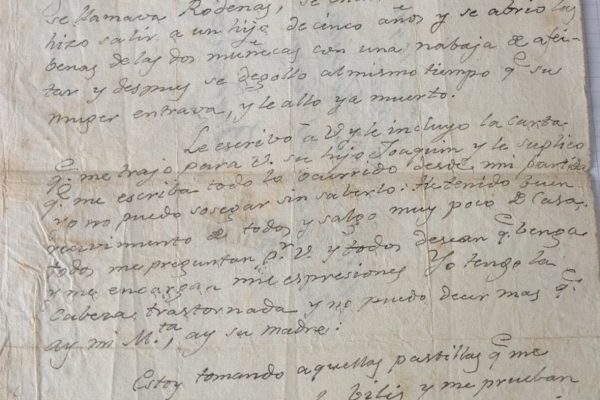 se llamava Ródenas, se
hizo salir a un hijo de cinco años y se abrio las
benas de las dos muñecas con una nabaja de afei-
tar y despues se degollo al mismo tiempo q.e su
muger entrava, y le allo ya muerto.
Le escribo a V. y le incluyo la carta
q.e me trajo para V. su hijo Joaquin y le suplico
q.e me escriba todo lo ocurrido desde mi partida
yo no puedo sosegar sin saberlo. He tenido buen
recivimiento de todos y salgo muy poco de Casa,
todos me preguntan p.r V. y todos desean q.e benga
y me encargan mil espresiones Yo tengo la
Cabeza trastornada y no puedo decir mas q.e
ay mi M.ta, ay su madre:
Estoy tomando aquellas pastillas q.e me
bilis y me prueban